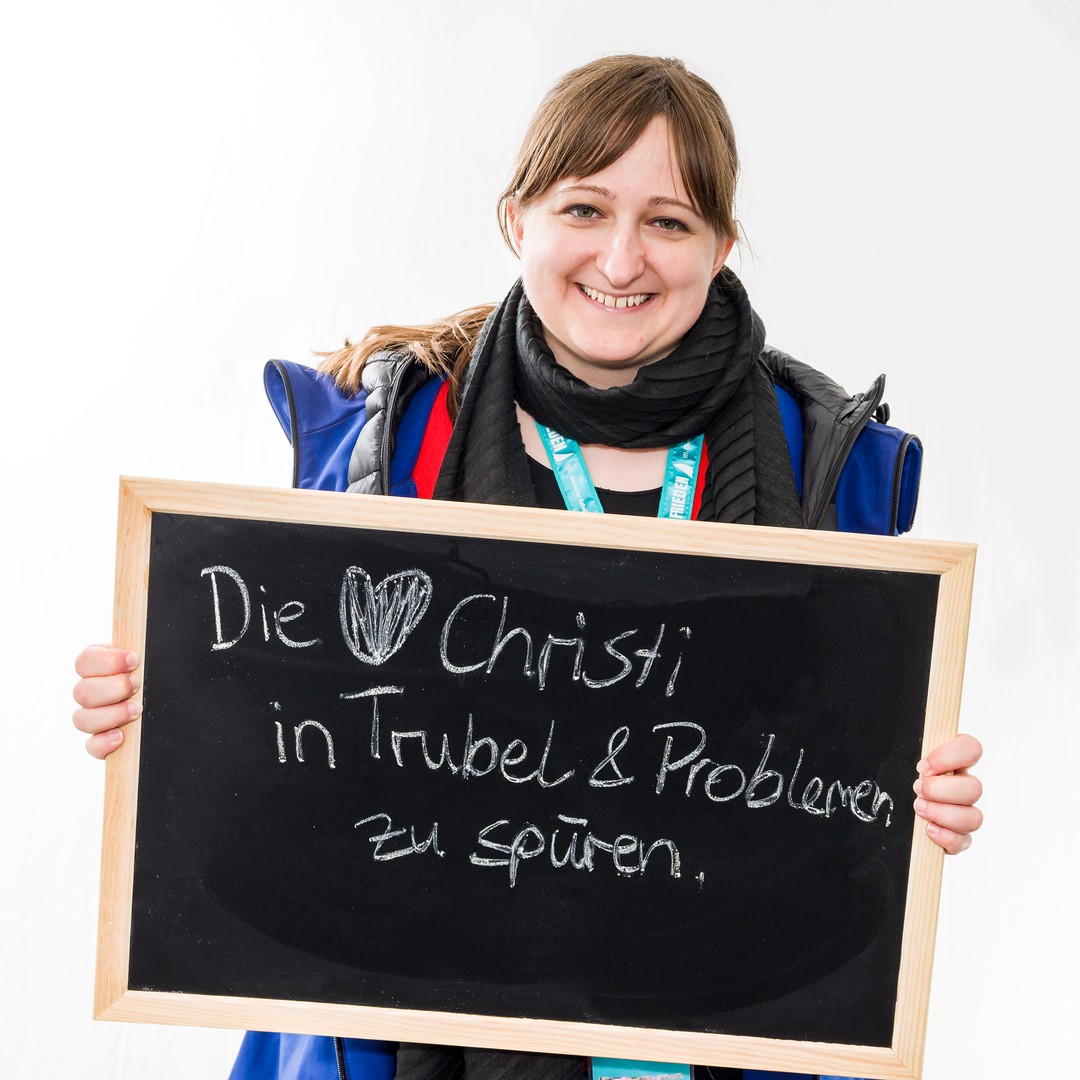 Die ♥ Christi
in Trubel & Problemen
zu spüren.
FRIEDEN